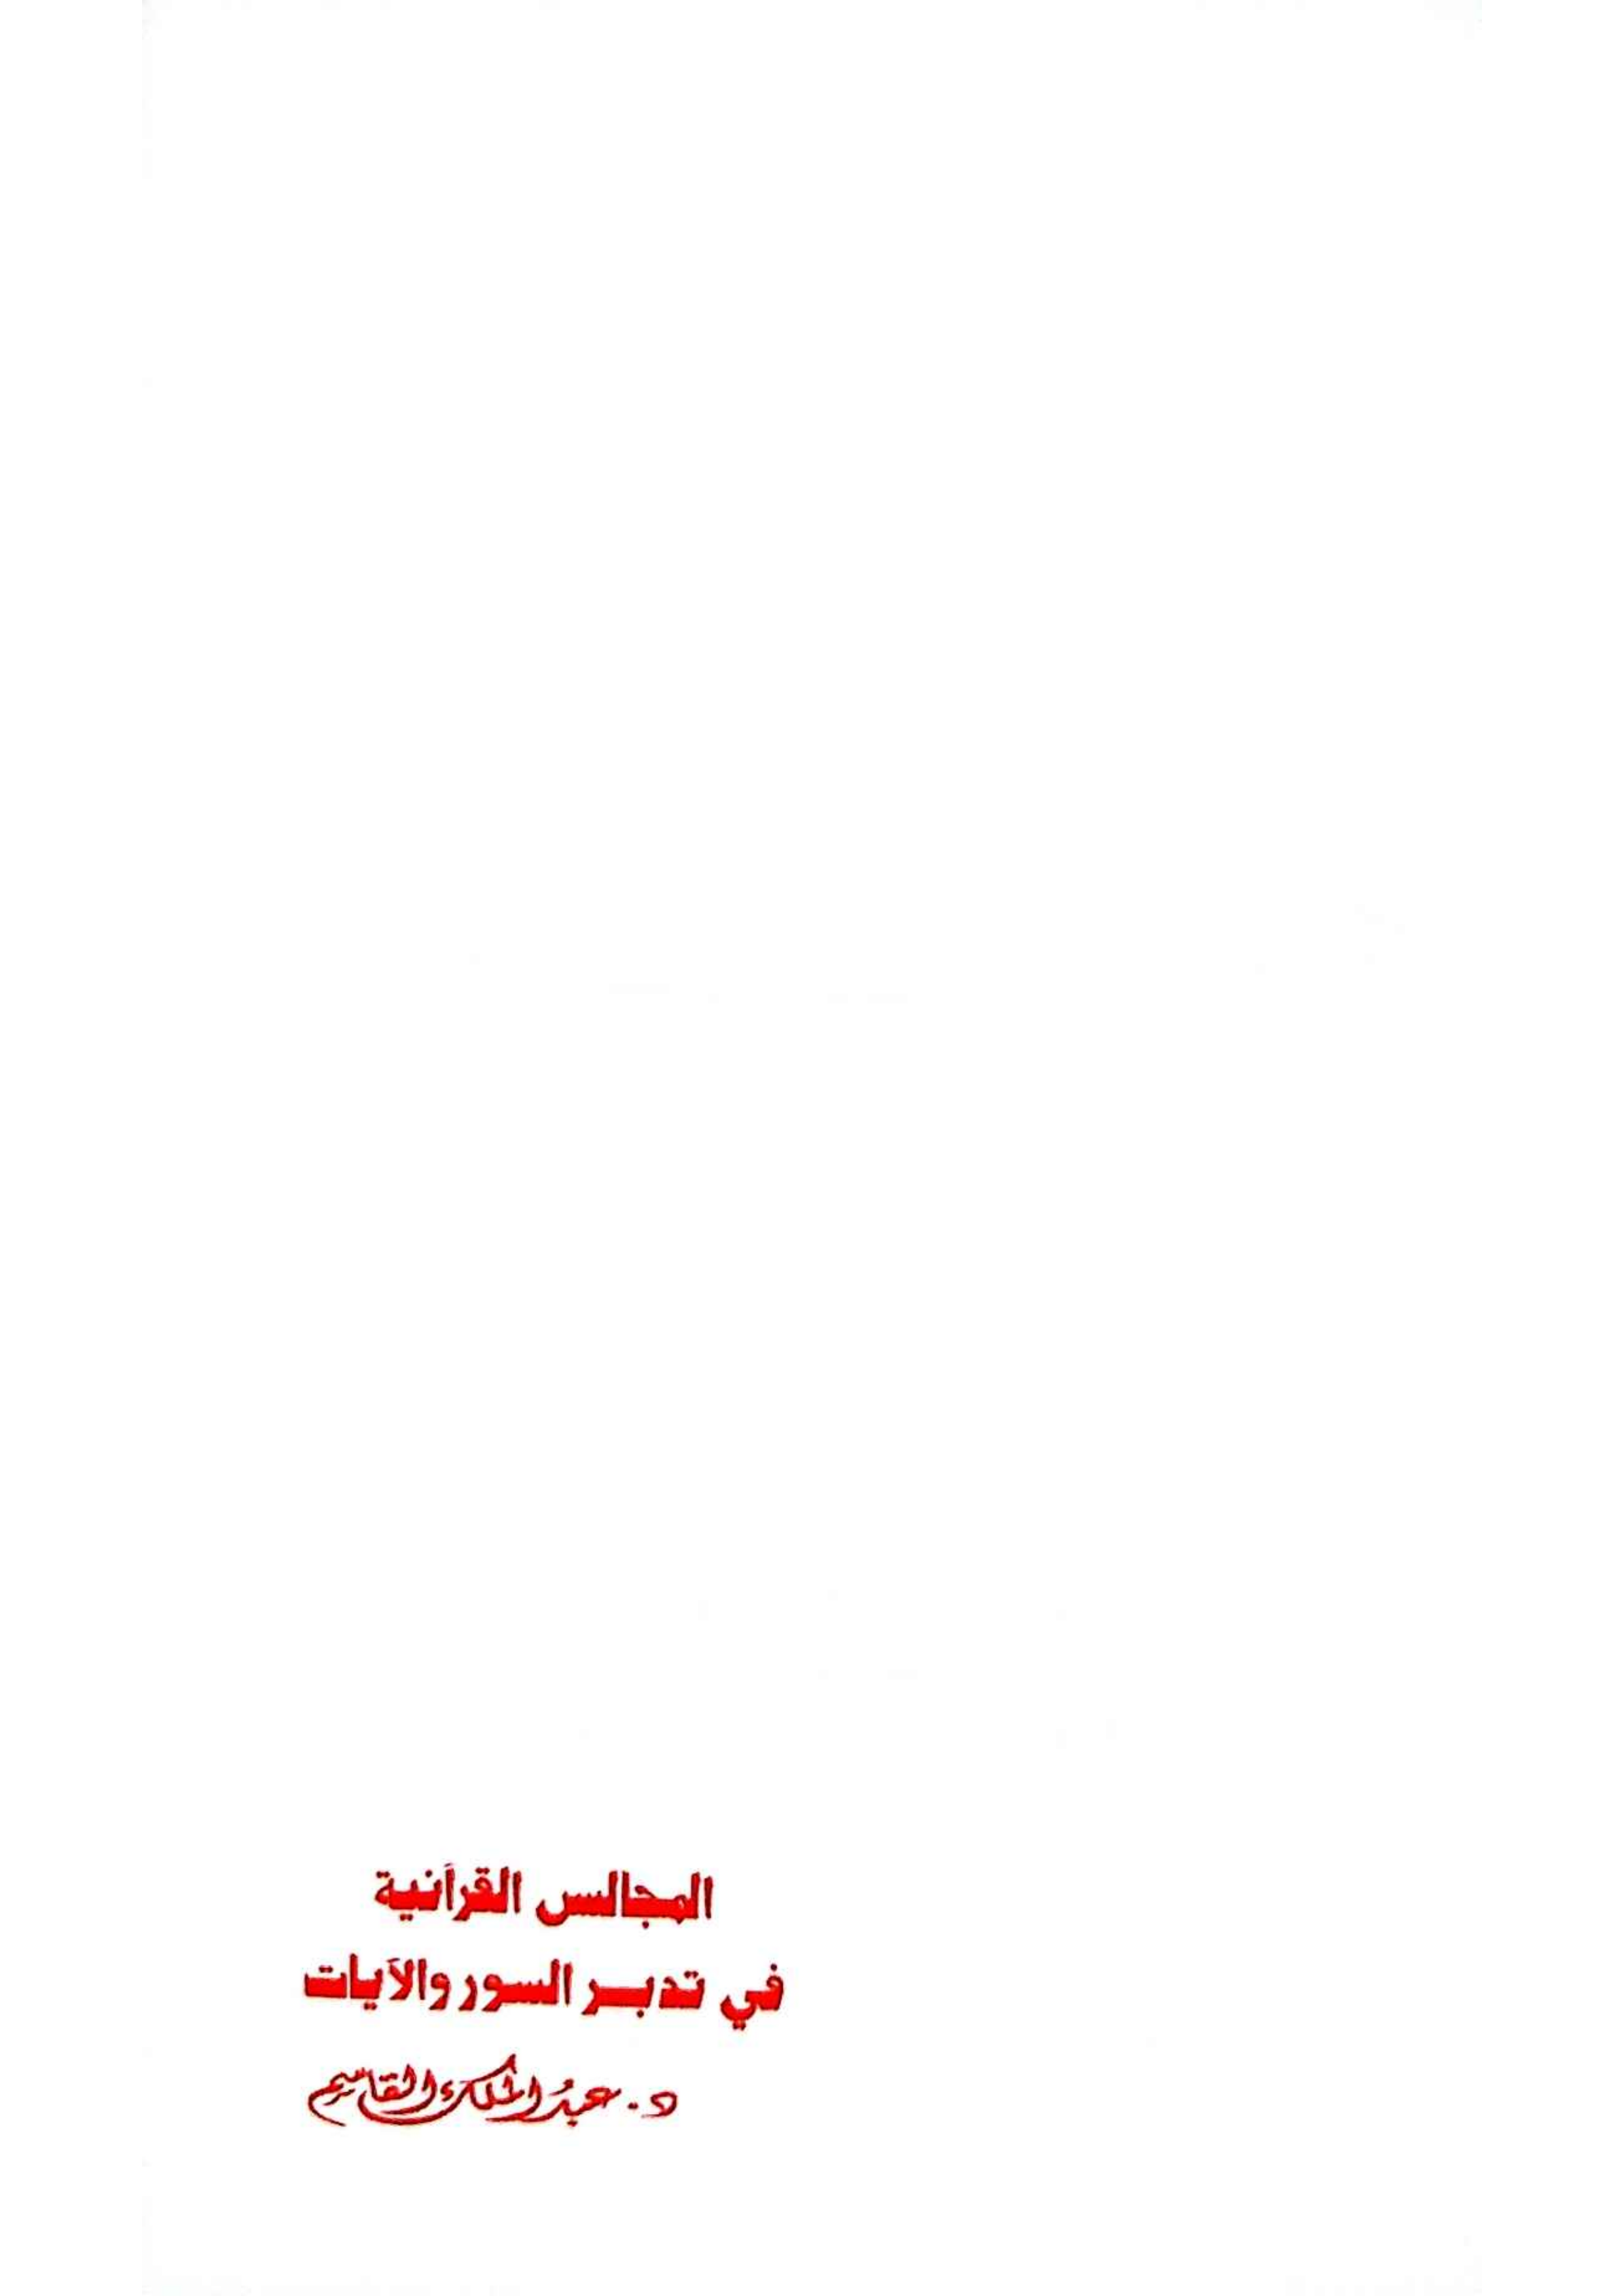 المجالس القرآنية
في تدبر السور والآيات
د. عبدُ الملك القاسم